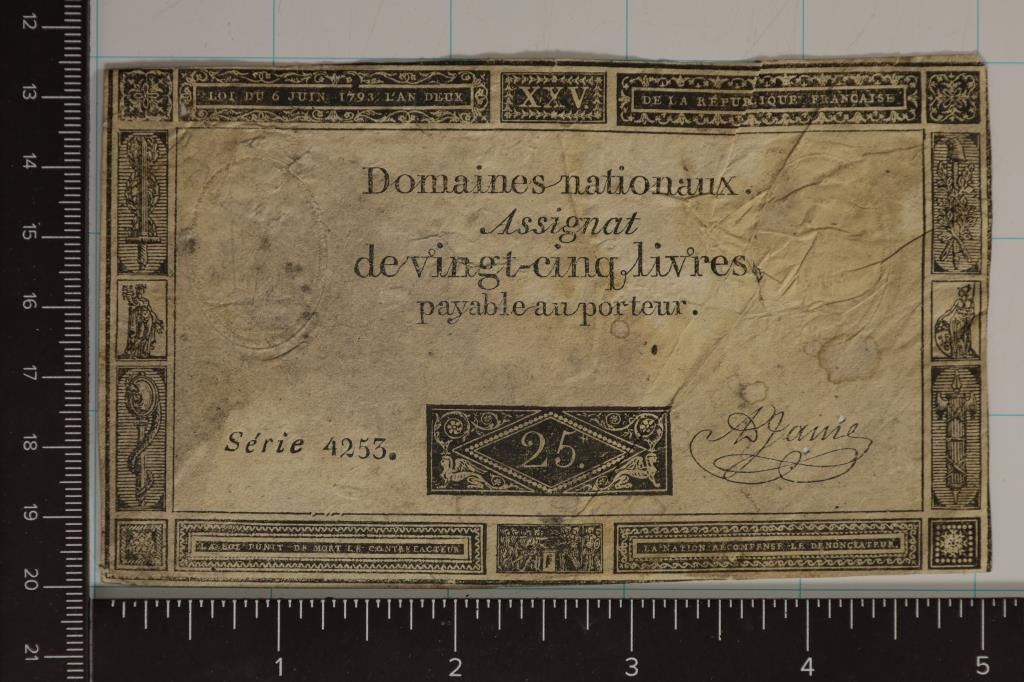 LOI DU 6 JUIN 1793 L'AN DEUX
XXV
DE LA RÉPUBLIQUE FRANÇAISE
Domaines nationaux.
Assignat
de vingt-cinq livres
payable au porteur.
Série 4253.
25.
A Jame
LA LOI PUNIT DE MORT LE CONTREFACTEUR
LA NATION RÉCOMPENSE LE DÉNONCIATEUR
12
13
14
15
16
17
18
19
20
21
1 2 3 4 5